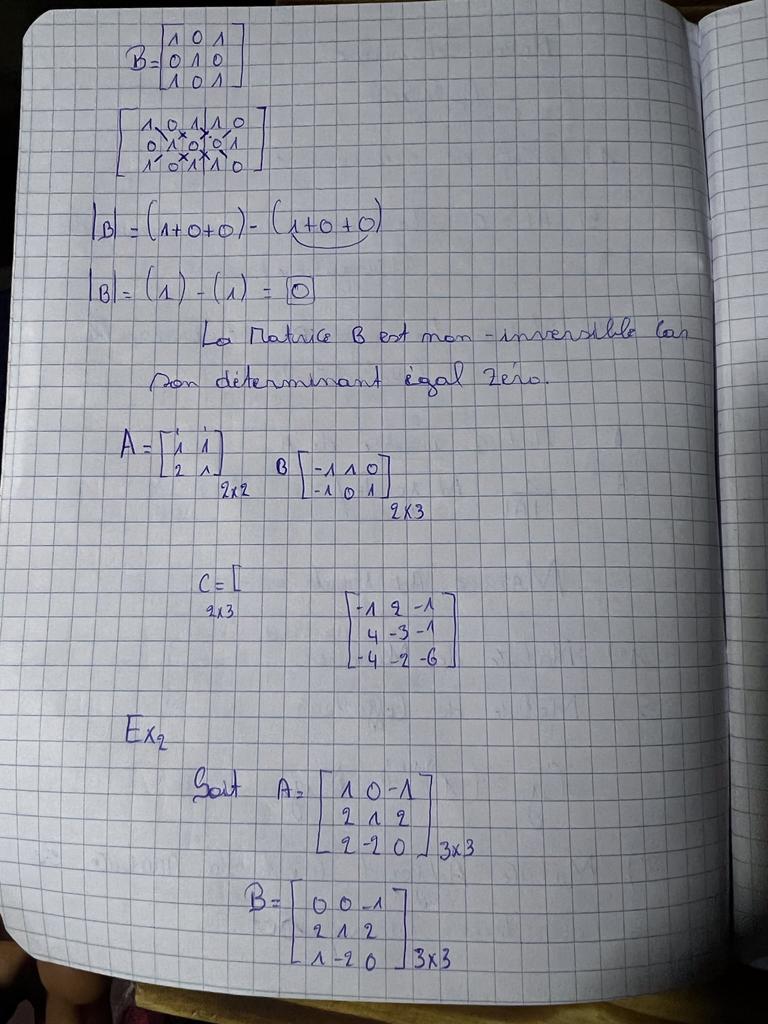 B = [1 0 1
0 1 0
1 0 1]
[1 0 1 | 1 0
0 1 0 | 0 1
1 0 1 | 1 0]
|B| = (1+0+0) - (1+0+0)
|B| = (1) - (1) = 0
La Matrice B est non-inversible Car
son déterminant égal Zéro.
A = [1 1
2 1] 2x2
B [-1 1 0
-1 0 1] 2x3
C = [
2x3
[-1 2 -1
4 -3 -1
-4 -2 -6]
Ex2
Soit A = [1 0 -1
2 1 2
2 -2 0] 3x3
B = [0 0 -1
2 1 2
1 -2 0] 3x3